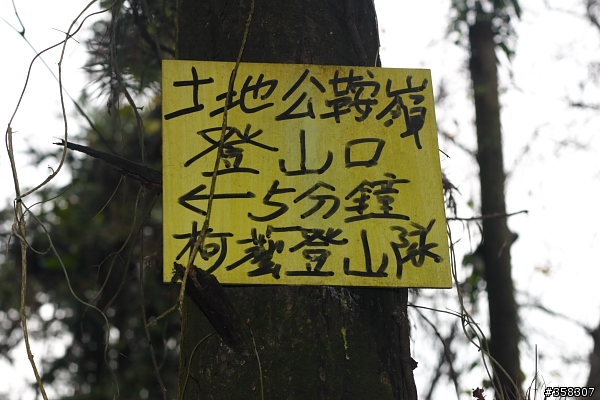 土地公鞍嶺
登山口
←5分鐘
柯義登山隊
#358307